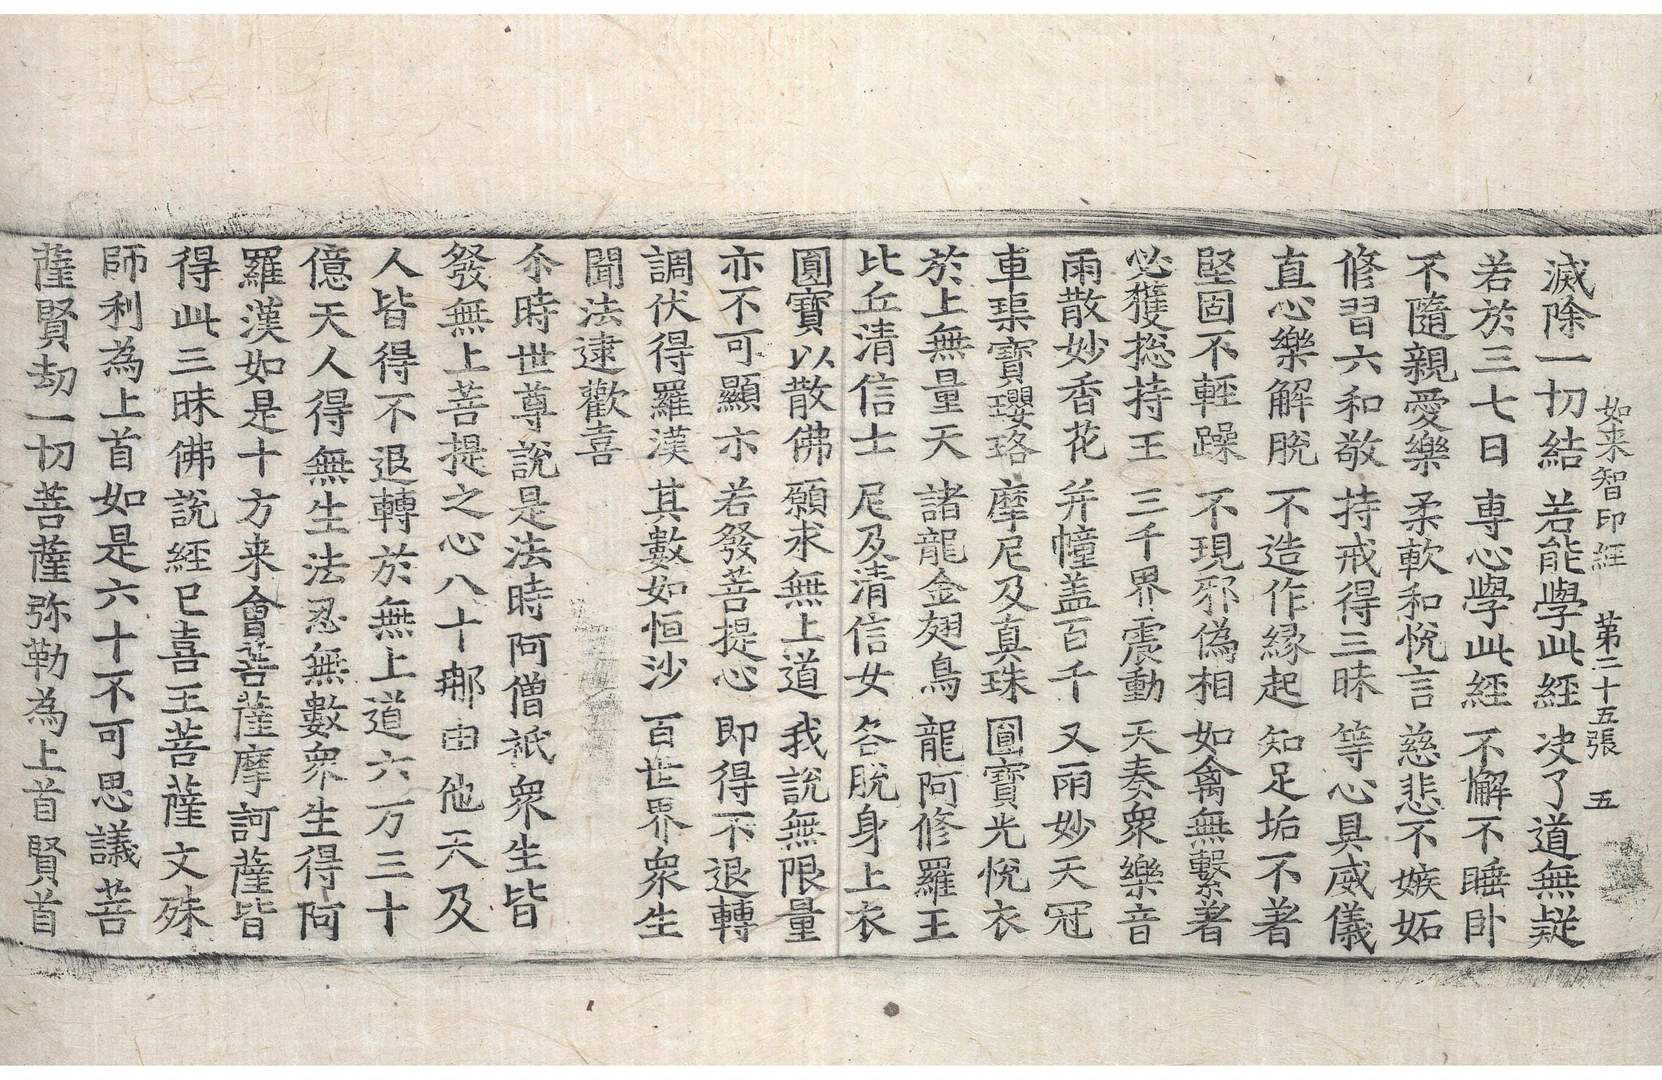 如来智印經 第二十五張 五
滅除一切結 若能學此經 决了道無疑
若於三七日 専心學此經 不懈不睡卧
不隨親愛樂 柔軟和悅言 慈悲不嫉妬
修習六和敬 持戒得三昧 等心具威儀
直心樂解脫 不造作縁起 知足垢不著
堅固不輕躁 不現邪偽相 如禽無繫著
必獲捴持王 三千界震動 天奏衆樂音
雨散妙香花 并幢盖百千 又雨妙天冠
車𤦲寶瓔珞 摩尼及真珠 圎寶光悅衣
於上無量天 諸龍金翅鳥 龍阿修羅王
比丘清信士 尼及清信女 各脫身上衣
圎寶以散佛 願求無上道 我說無限量
亦不可顯示 若發菩提心 即得不退轉
調伏得羅漢 其數如恒沙 百世界衆生
聞法逮歡喜
尒時世尊說是法時阿僧祇衆生皆
發無上菩提之心八十那由他天及
人皆得不退轉於無上道六万三十
億天人得無生法忍無數衆生得阿
羅漢如是十方来會菩薩摩訶薩皆
得此三昧佛說經已喜王菩薩文殊
師利為上首如是六十不可思議菩
薩賢劫一切菩薩弥勒為上首賢首